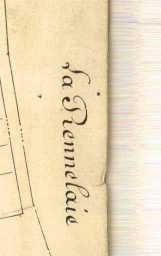 la Piennelaie